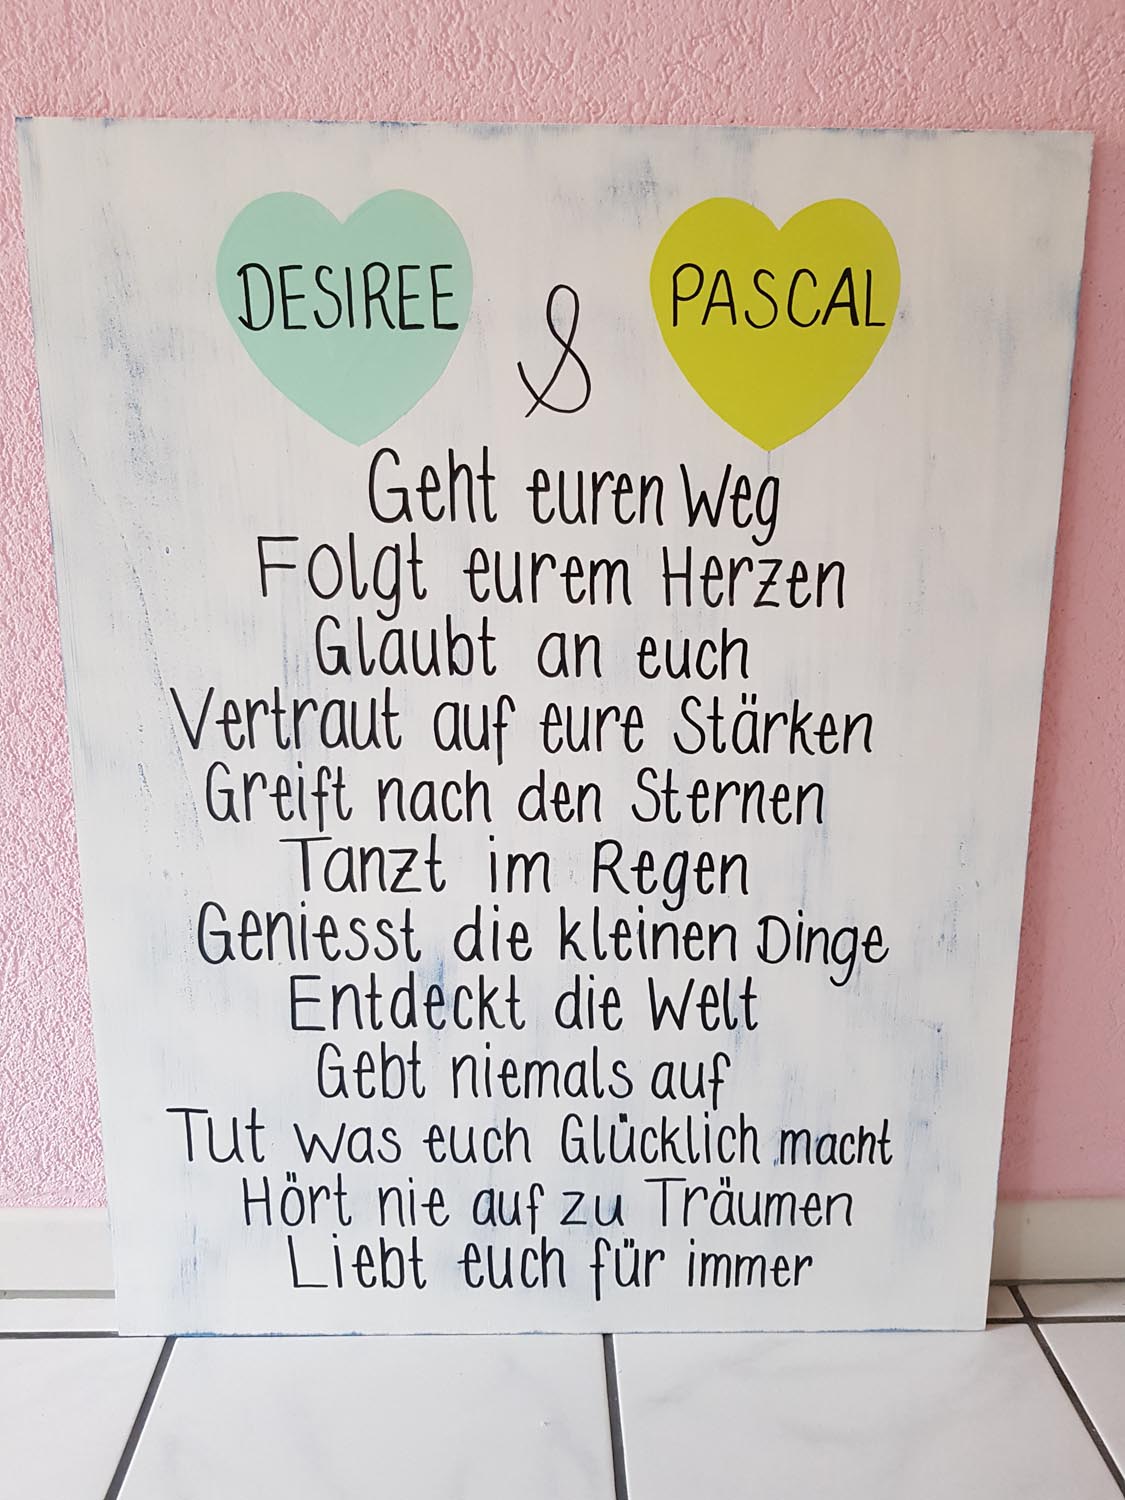 DESIREE & PASCAL
Geht euren Weg
Folgt eurem Herzen
Glaubt an euch
Vertraut auf eure Stärken
Greift nach den Sternen
Tanzt im Regen
Geniesst die kleinen Dinge
Entdeckt die Welt
Gebt niemals auf
Tut was euch Glücklich macht
Hört nie auf zu Träumen
Liebt euch für immer